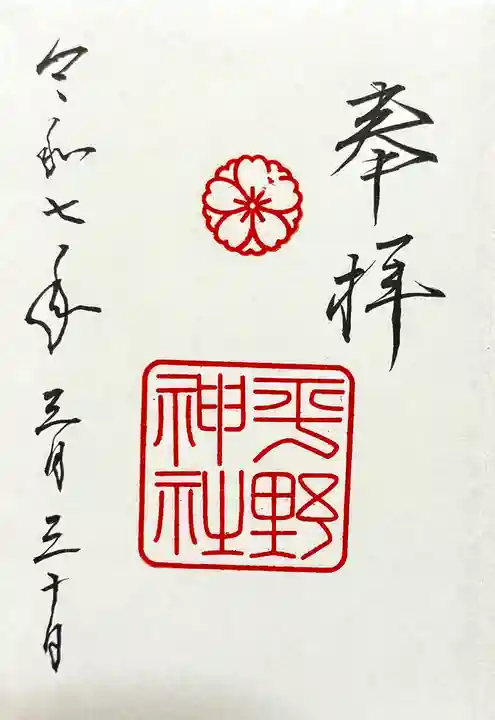 奉拝
平野
神社
令和七年三月三十日